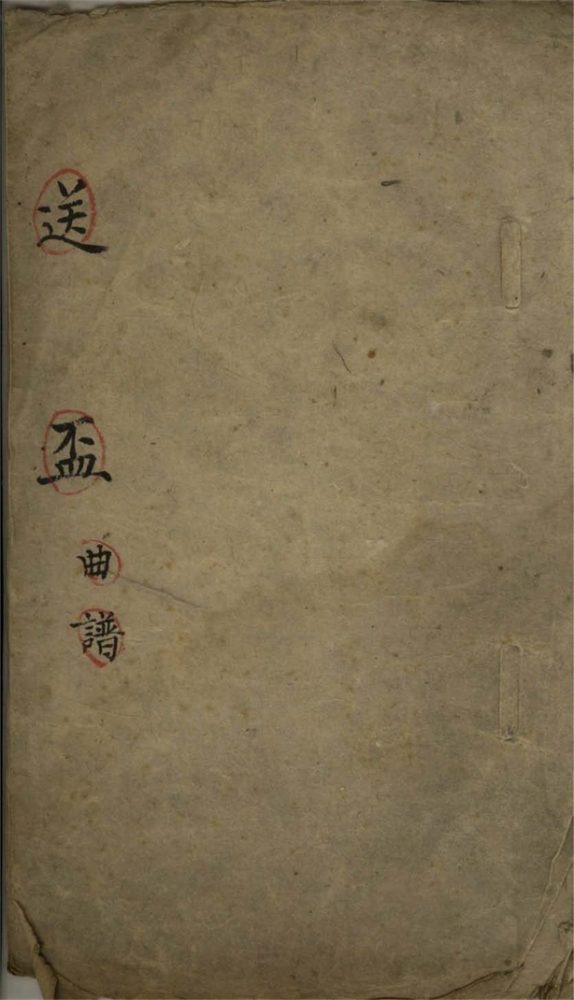 送盃曲譜